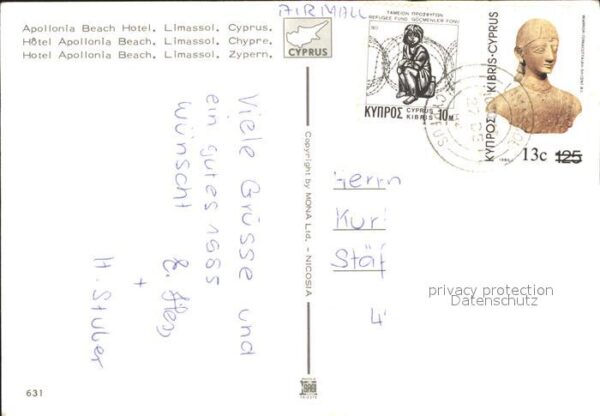 AIRMAIL
Apollonia Beach Hotel, Limassol, Cyprus.
Hôtel Apollonia Beach, Limassol, Chypre.
Hotel Apollonia Beach, Limassol, Zypern.
CYPRUS
ΤΑΜΕΙΟΝ ΠΡΟΣΦΥΓΩΝ
REFUGEE FUND GÖÇMENLER FONU
ΚΥΠΡΟΣ
CYPRUS
KIBRIS
10M
ΚΥΠΡΟΣ KIBRIS-CYPRUS
13c 125
Viele Grüsse und
ein gutes 1985
wünscht
+
H. Stuber
Copyright by MONA Ltd. - NICOSIA
Herrn
Kur
Stäf
4
privacy protection
Datenschutz
631